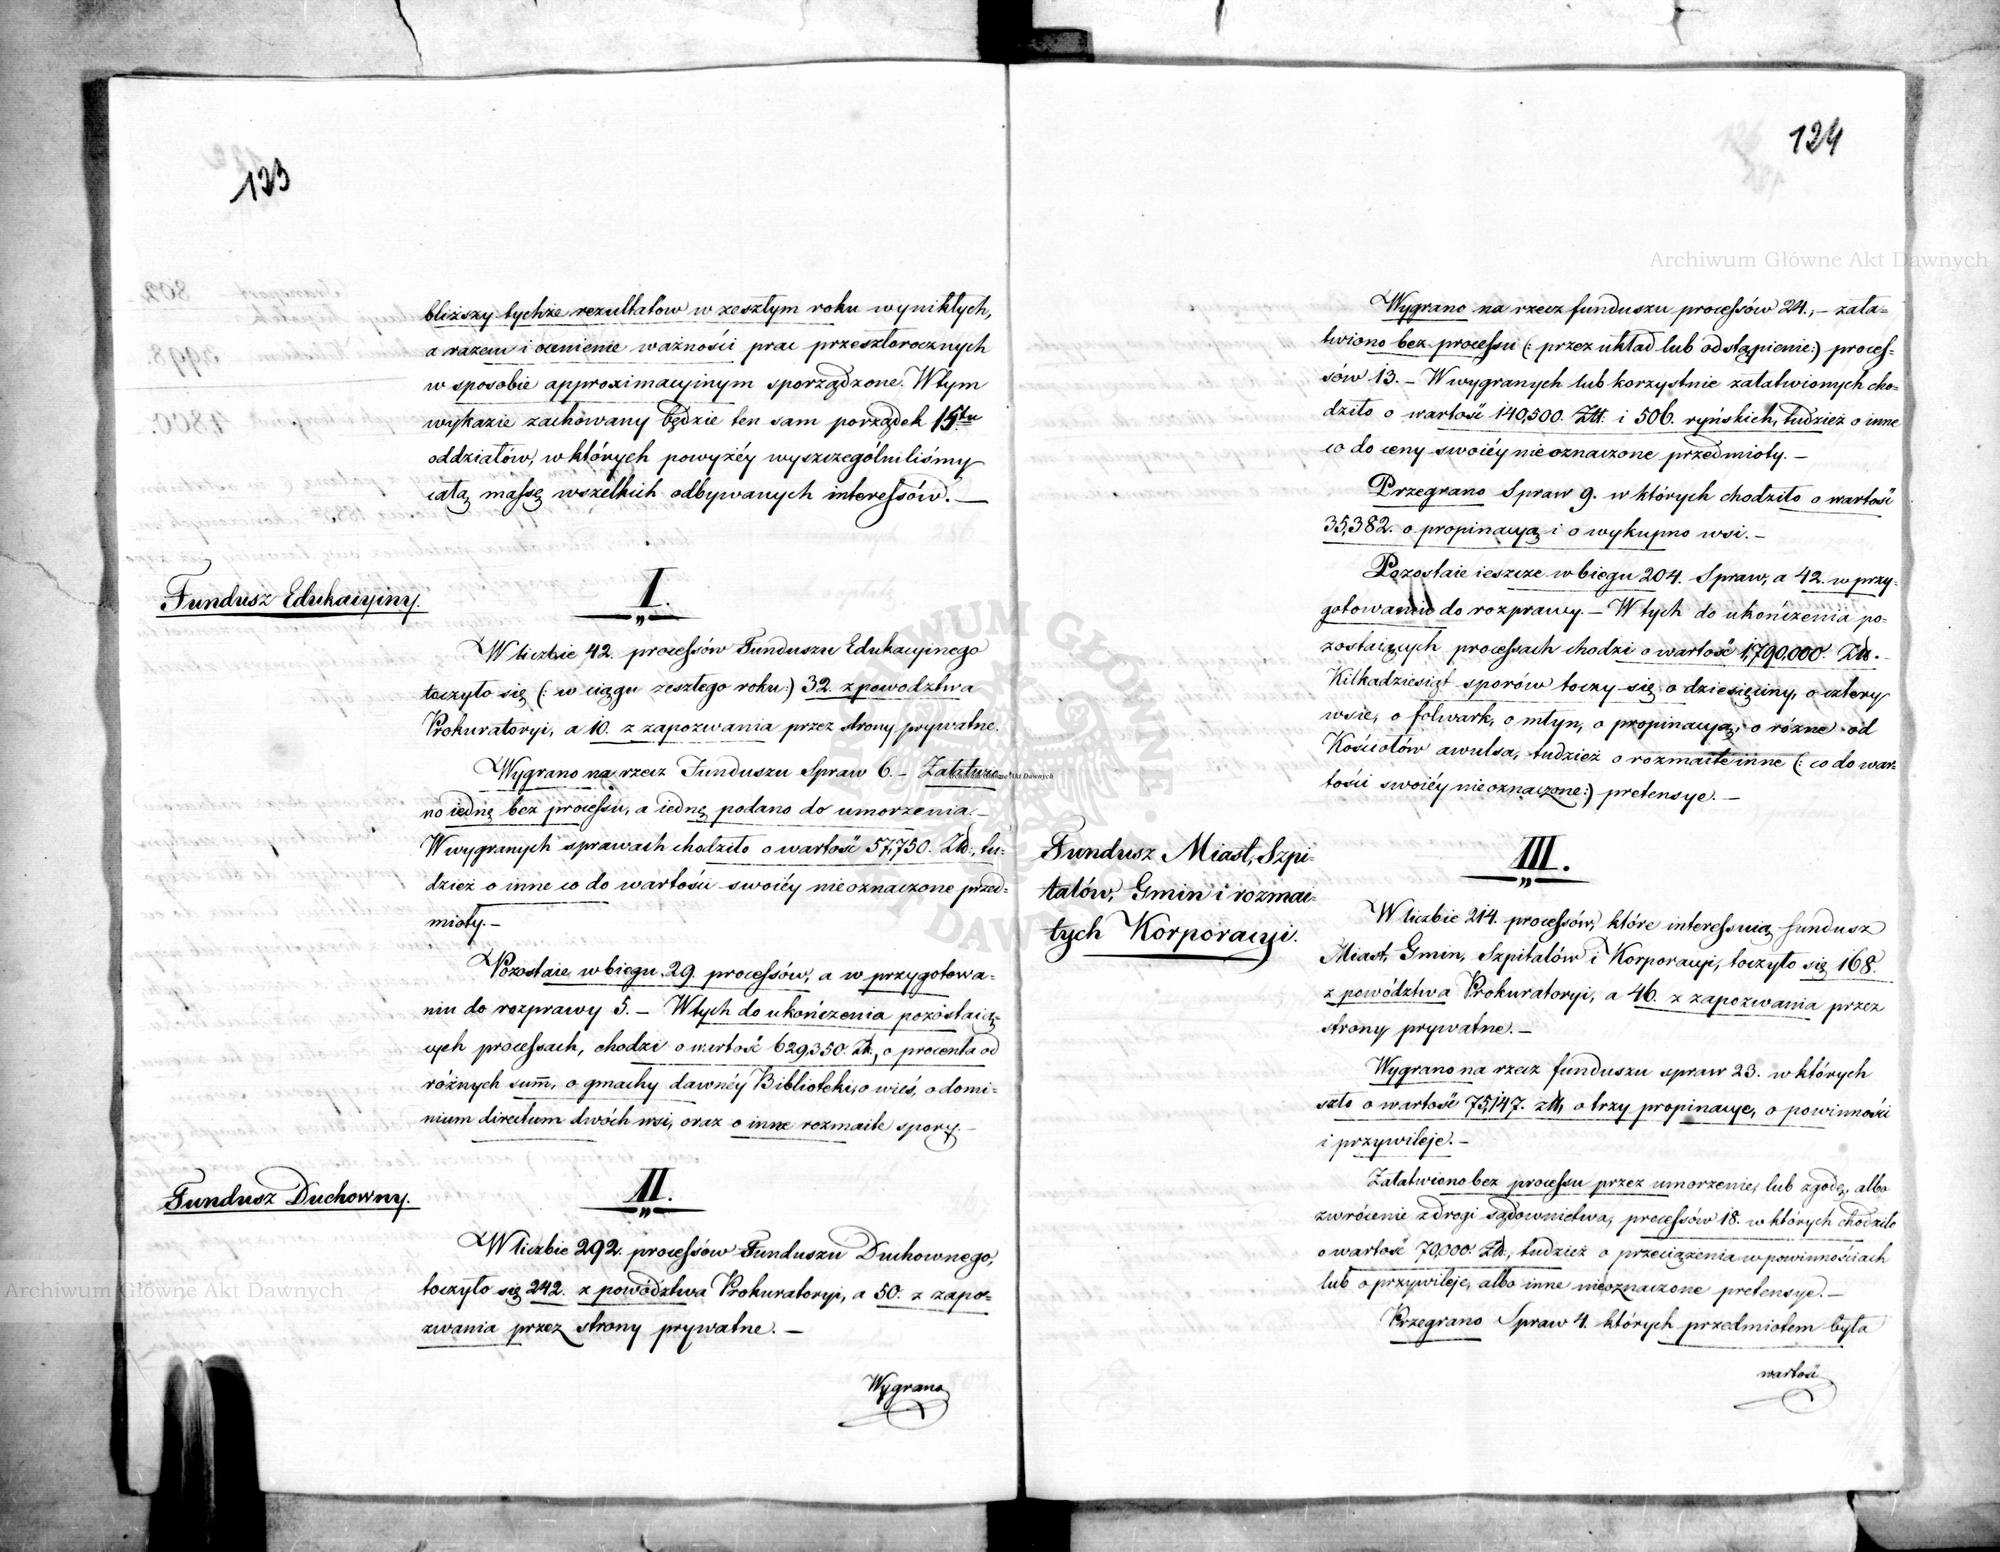 123
bliższy tychże rezultatow w zeszłym roku wynikłych,
a razem i ocenienie ważności prac przeszłorocznych
w sposobie approximacyinym sporządzone. W tym
wykazie zachowany będzie ten sam porządek 15tu
oddziałów, w których powyżéy wyszczególniliśmy
całą massę wszelkich odbywanych interessów. —
Fundusz Edukacyiny.
I.
W liczbie 42. processów Funduszu Edukacyinego
toczyło się (: w ciągu zeszłego roku:) 32. z powodztwa
Prokuratoryi, a 10. z zapozwania przez strony prywatne.
Wygrano na rzecz Funduszu Spraw 6. – Załatwio
no iednę bez processu, a iednę podano do umorzenia. –
W wygranych sprawach chodziło o wartość 57,750. Złł., tu-
dzież o inne co do wartości swoiéy nieoznaczone przed-
mioty. –
Pozostaie w biegu 29. processów, a w przygotowa-
niu do rozprawy 5. – W tych do ukończenia pozostaią-
cych processach, chodzi o wartość 629,350. Zł., o procenta od
różnych summ, o gmachy dawnéy Biblioteki, o wieś, o domi-
nium directum dwóch wsi, oraz o inne rozmaite spory. –
Fundusz Duchowny.
II.
W liczbie 292. processów Funduszu Duchownego,
toczyło się 242. z powództwa Prokuratoryi, a 50. z zapo-
zwania przez strony prywatne. —
Wygrano
124
Wygrano na rzecz funduszu processów 24., – zała-
twiono bez processu (: przez układ lub odstąpienie:) proces-
sów 13. – W wygranych lub korzystnie załatwionych cho-
dziło o wartość 140,500. Złł. i 506. ryńskich, tudzież o inne
co do ceny swoiéy nieoznaczone przedmioty. –
Przegrano Spraw 9. w których chodziło o wartość
35,382. o propinacyą i o wykupno wsi. –
Pozostaie ieszcze w biegu 204. Spraw, a 42. w przy-
gotowaniu do rozprawy. – W tych do ukończenia po-
zostaiących processach chodzi o wartość 1,790,000. Złł. –
Kilkadziesiąt sporów toczy się o dziesięciny, o cztery
wsie, o folwark, o młyn, o propinacyą, o różne od
Kościołów awulsa, tudzież o rozmaite inne (: co do war-
tości swoiéy nieoznaczone:) pretensye. –
Fundusz Miast, Szpi-
talów, Gmin i rozmai-
tych Korporacyi.
III.
W liczbie 214. processów, które interessuią fundusz
Miast, Gmin, Szpitalów i Korporacyi, toczyło się 168.
z powództwa Prokuratoryi, a 46. z zapozwania przez
strony prywatne. –
Wygrano na rzecz funduszu spraw 23. w których
szło o wartość 75,147. złł, o trzy propinacye, o powinności
i przywileje. –
Załatwiono bez processu przez umorzenie, lub zgodę, albo
zwrócenie z drogi sądownictwa, processów 18. w których chodziło
o wartość 70,000. Złł., tudzież o przeciążenia w powinnościach
lub o przywileje, albo inne nieoznaczone pretensye. –
Przegrano Spraw 4. których przedmiotem była
wartość
Archiwum Główne Akt Dawnych
Archiwum Główne Akt Dawnych
Archiwum Główne Akt Dawnych
ARCHIWUM GŁÓWNE AKT DAWNYCH